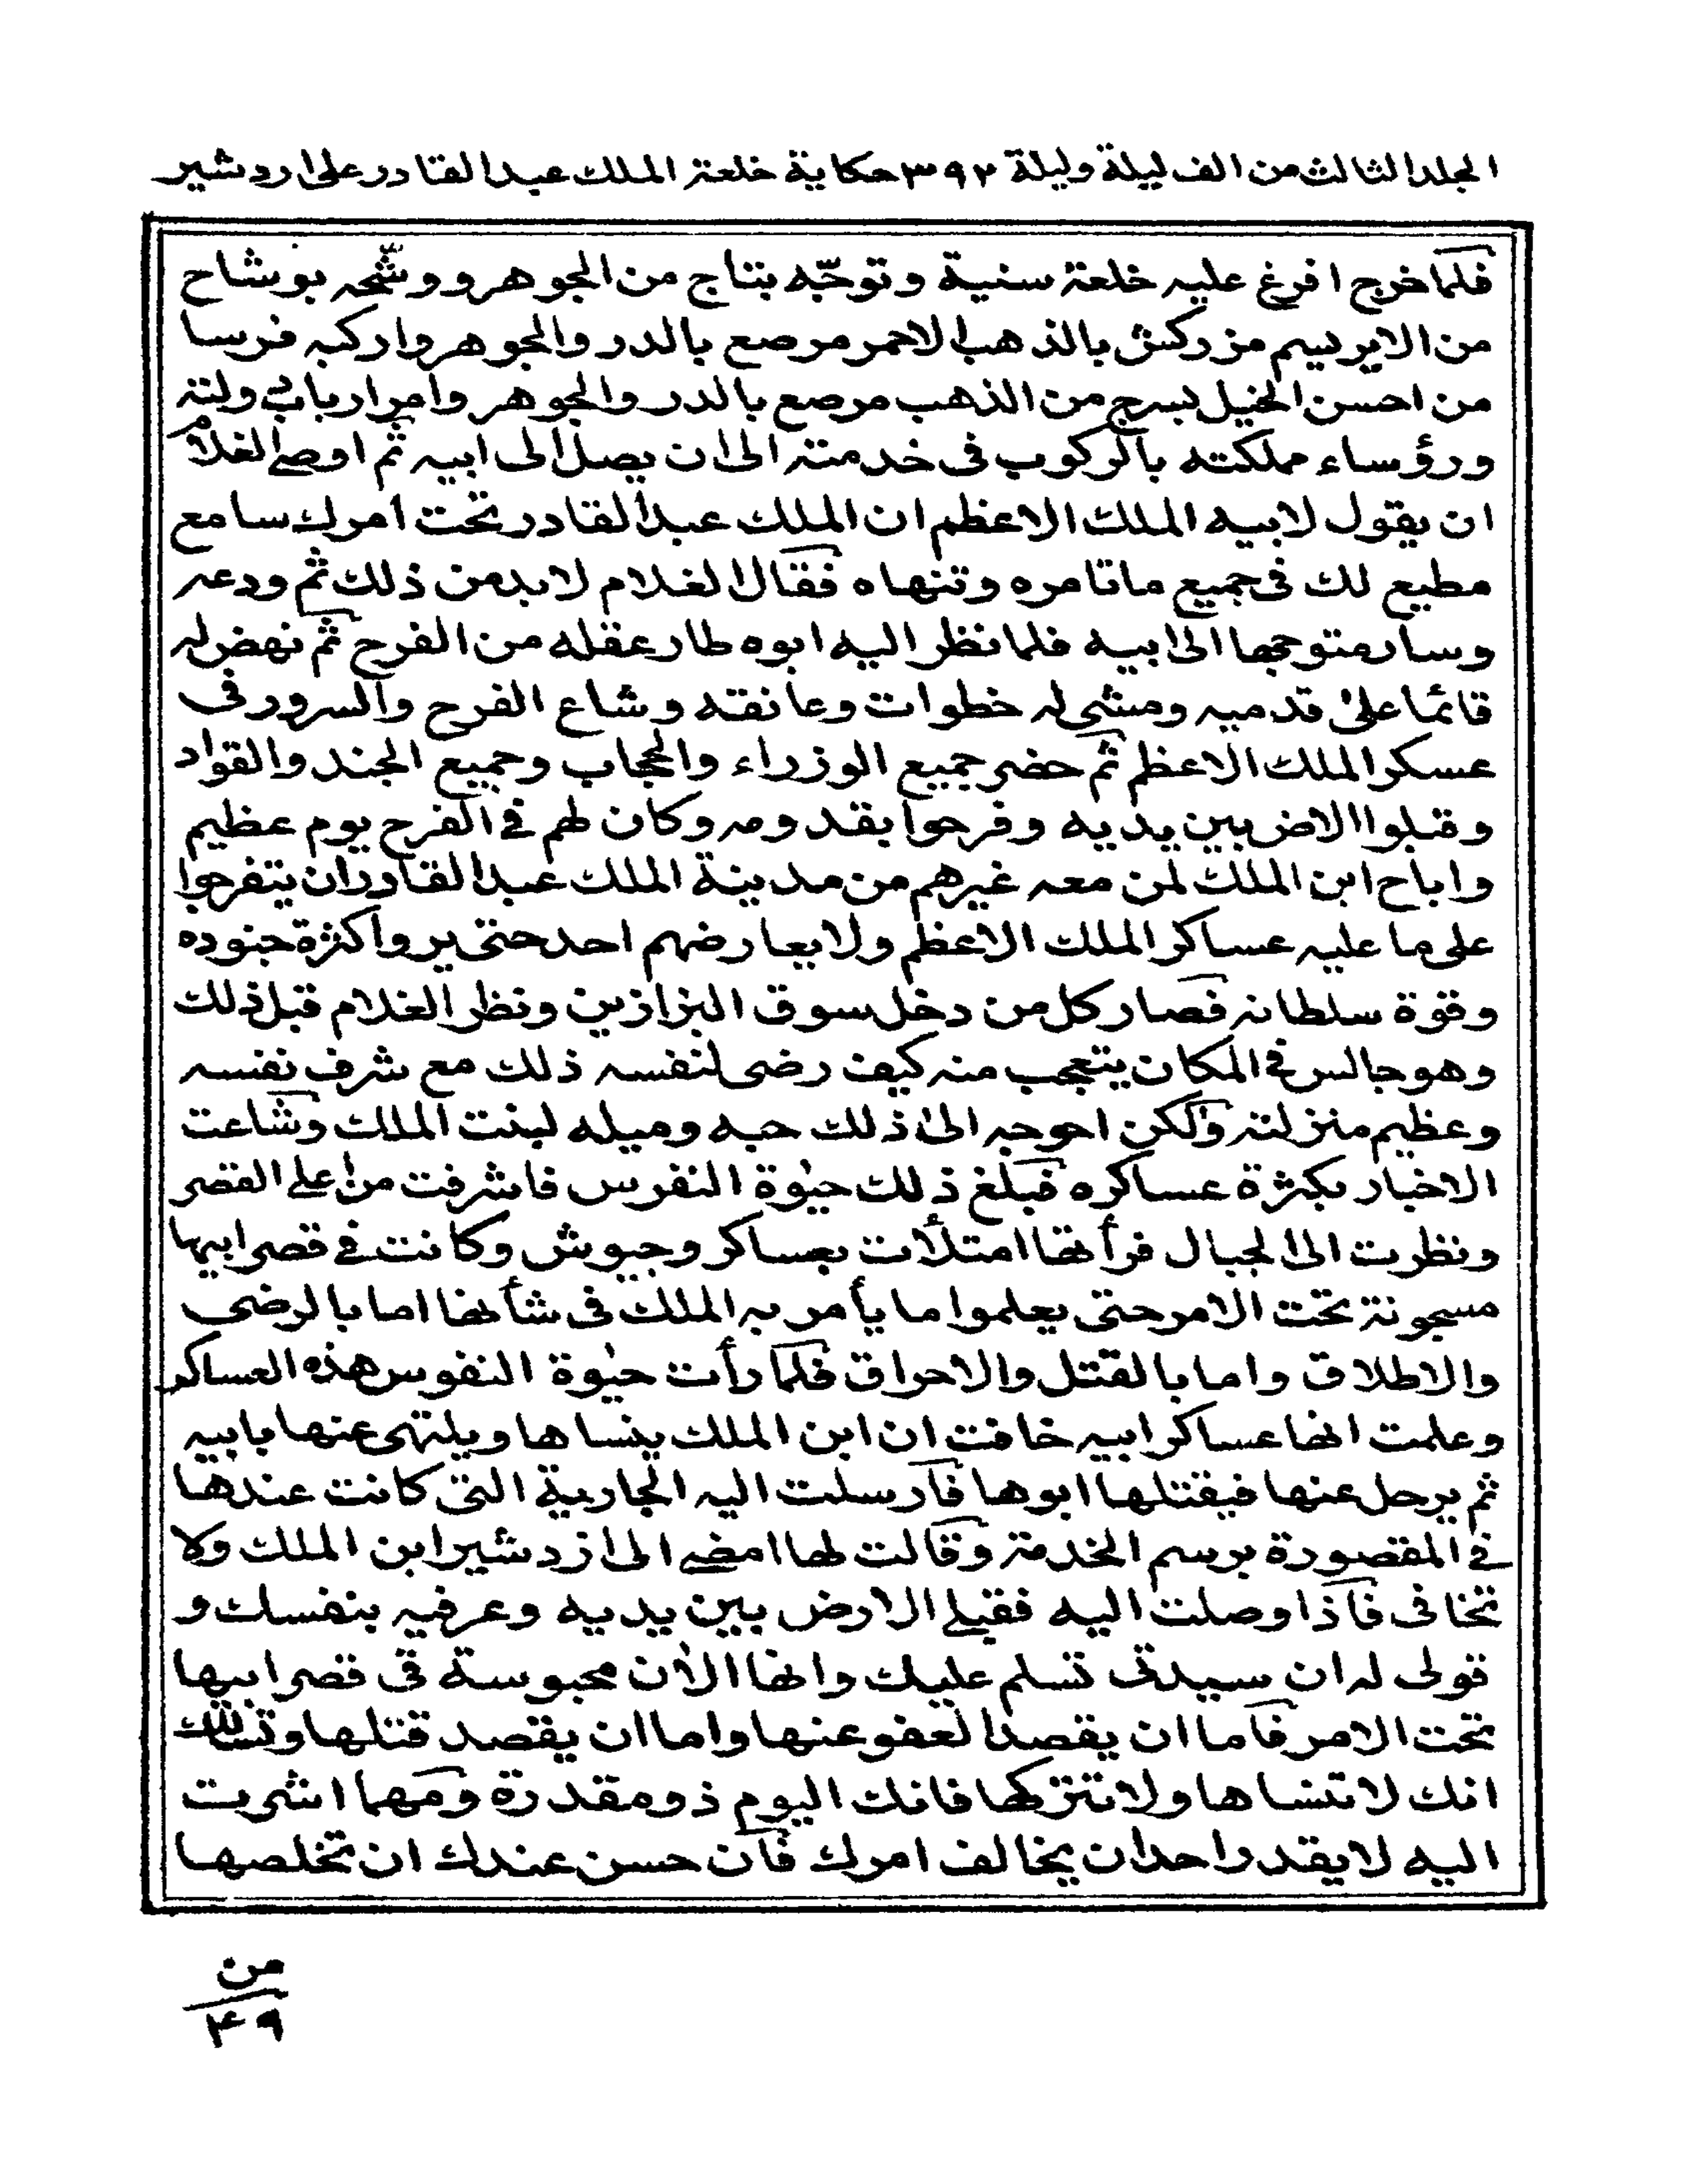 المجلد الثالث من الف ليلة وليلة ٣٩٢ حكاية خلعة الملك عبد القادر على اردشير
فلما خرج افرغ عليه خلعة سنية وتوجّه بتاج من الجوهر ووشّحه بوشاح
من الابريسم مزركش بالذهب الاحمر مرصع بالدر والجوهر واركبه فرسا
من احسن الخيل بسرج من الذهب مرصع بالدر والجوهر وامر ارباب دولته
ورؤساء مملكته بالركوب فى خدمته الى ان يصل الى ابيه ثم اوصى الغلام
ان يقول لابيه الملك الاعظم ان الملك عبد القادر تحت امرك سامع
مطيع لك فى جميع ما تامره وتنهاه فقال الغلام لا بد من ذلك ثم ودعه
وسار متوجها الى ابيه فلما نظر اليه ابوه طار عقله من الفرح ثم نهض له
قائما على قدميه ومشى له خطوات وعانقه وشاع الفرح والسرور فى
عسكر الملك الاعظم ثم حضر جميع الوزراء والحجاب وجميع الجند والقواد
وقبلوا الارض بين يديه وفرحوا بقدومه وكان لهم فى الفرح يوم عظيم
واباح ابن الملك لمن معه غيرهم من مدينة الملك عبد القادر ان يتفرجوا
على ما عليه عساكر الملك الاعظم ولا يعارضهم احد حتى يروا كثرة جنوده
وقوة سلطانه فصار كل من دخل سوق البزازين ونظر الغلام قبل ذلك
وهو جالس فى المكان يتعجب منه كيف رضى لنفسه ذلك مع شرف نفسه
وعظيم منزلته ولكن احوجه الى ذلك حبه وميله لبنت الملك وشاعت
الاخبار بكثرة عساكره فبلغ ذلك حيٰوة النفوس فاشرفت من اعلى القصر
ونظرت الى الجبال فرأتها امتلأت بعساكر وجيوش وكانت فى قصر ابيها
مسجونة تحت الامر حتى يعلموا ما يأمر به الملك فى شأنها اما بالرضى
والاطلاق واما بالقتل والاحراق فلما رأت حيٰوة النفوس هذه العساكر
وعلمت انها عساكر ابيه خافت ان ابن الملك ينساها ويلتهى عنها بابيه
ثم يرحل عنها فيقتلها ابوها فارسلت اليه الجارية التى كانت عندها
فى المقصورة برسم الخدمة وقالت لها امضى الى ازدشير ابن الملك ولا
تخافى فاذا وصلت اليه فقبلى الارض بين يديه وعرفيه بنفسك و
قولى له ان سيدتى تسلم عليك وانها الأن محبوسة فى قصر ابيها
تحت الامر فاما ان يقصد العفو عنها واما ان يقصد قتلها وتسألك
انك لا تنساها ولا تتركها فانك اليوم ذو مقدرة ومهما اشرت
اليه لا يقدر احد ان يخالف امرك فان حسن عندك ان تخلصها
من
٤٩